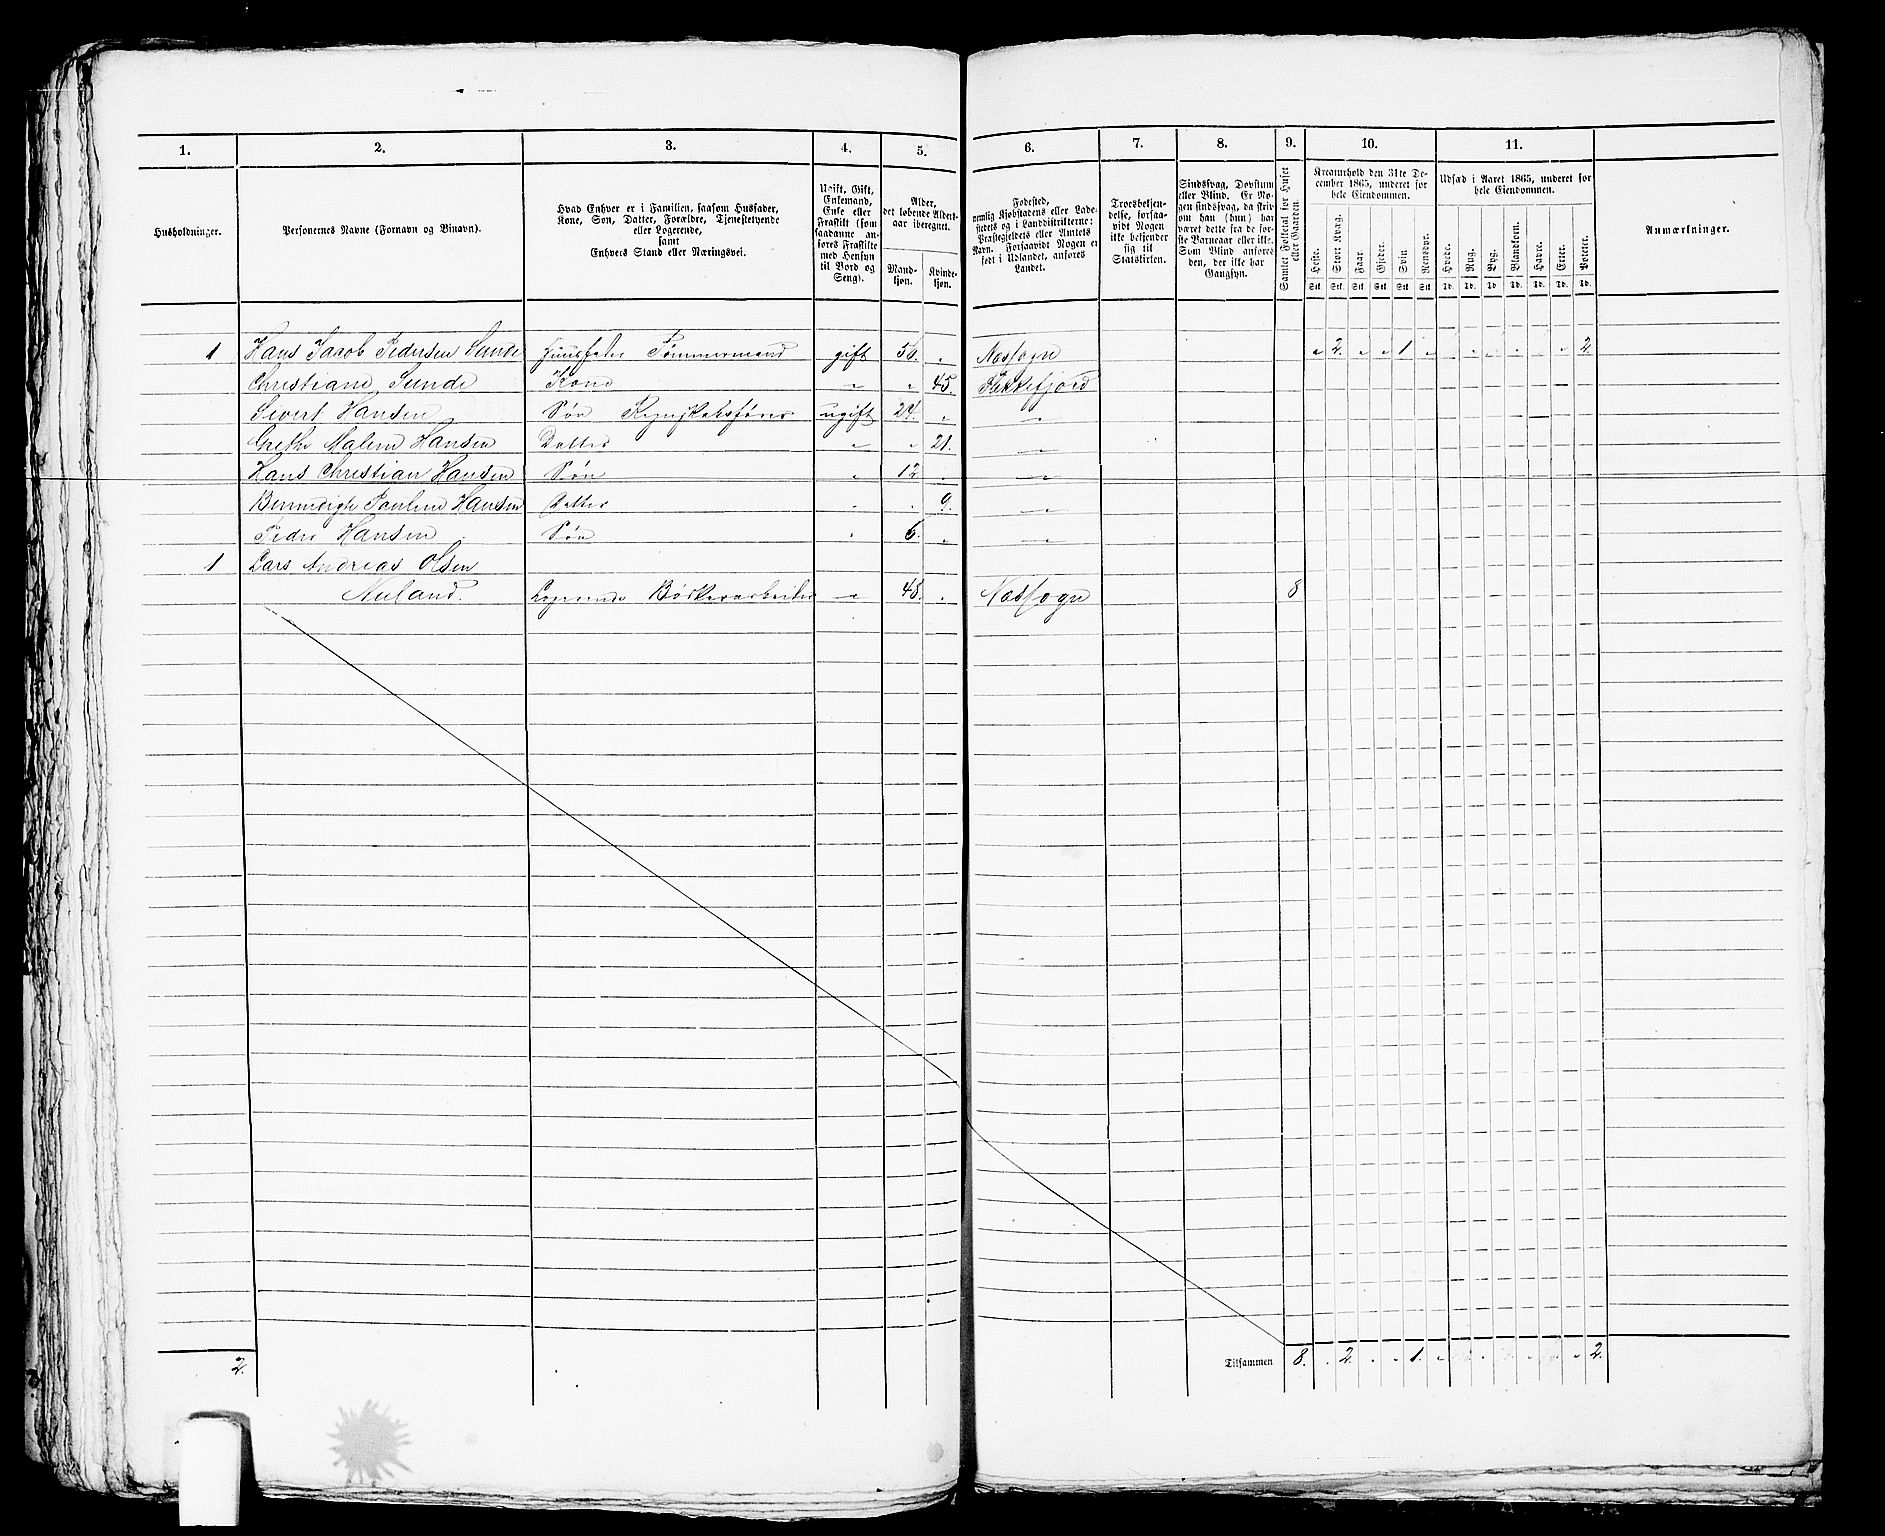 1. 2. 3. 4. 5. 6. 7. 8. 9. 10. 11.
Husholdninger.
Personernes Navne (Fornavn og Binavn).
Hvad Enhver er i Familien, saasom Husfader,
Kone, Søn, Datter, Forældre, Tjenestetyende
eller Logerende,
samt
Enhvers Stand eller Næringsvei.
Ugift, Gift,
Enkemand,
Enke eller
Fraskilt (som
saadanne an-
føres Fraskilte
med Hensyn
til Bord og
Seng).
Alder,
det løbende Alders-
aar iberegnet.
Mand-
kjøn.
Kvinde-
kjøn.
Fødested,
nemlig Kjøbstadens eller Lade-
stedets og i Landdistrikterne:
Præstegjeldets eller Amtets
Navn. Forsaavidt Nogen er
født i Udlandet, anføres
Landet.
Troesbekjen-
delse, forsaa-
vidt Nogen
ikke bekjender
sig til
Statskirken.
Sindssvag, Døvstum
eller Blind. Er No-
gen sindssvag, da skriv
om han (hun) har
været dette fra de før-
ste Barneaar eller ikke.
Som Blind anføres
den, der ikke har
Gangsyn.
Samlet Folketal for Huset
eller Gaarden.
Kreaturhold den 31te De-
cember 1865, underet for
hele Eiendommen.
Heste. Stort Kvæg. Faar. Gjeder. Svin Rensdyr.
Stk. Stk. Stk. Stk. Stk. Stk.
Udsæd i Aaret 1865, underet for
hele Eiendommen.
Hvede. Rug. Byg. Blandkorn. Havre. Erter. Poteter.
Td. Td. Td. Td. Td. Td. Td.
Anmærkninger.
1 Hans Jacob Pedersen Sunde Huusfader Tømmermand gift 56. " Nessogn " 2. " " 1 " 2.
Christiane Sunde Kone " " 45. Flekkefjord
Sivert Hansen Søn Regnskabsfører ugift 24. " "
Malene Hansen Datter " " 21. "
Hans Christian Hansen Søn " 12 . "
Pauline Hansen Datter " . 9. "
Peder Hansen Søn " 6. " "
1 Lars Andreas Olsen
Nuland. Logerende Bødkerarbeider " 48. " Nessogn 8
2. Tilsammen 8. . 2. " " 1. " " 2.